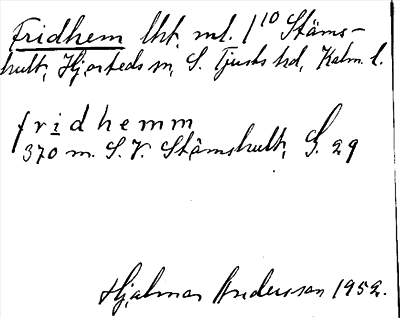 Fridhem lht. ml. 1¹⁰ Stäms-
hult, Hjorteds sn, S. Tjusts hd, Kalm. l.
fridhemm
370 m. S.V. Stämshult, G. 29
Hjalmar Andersson 1952.